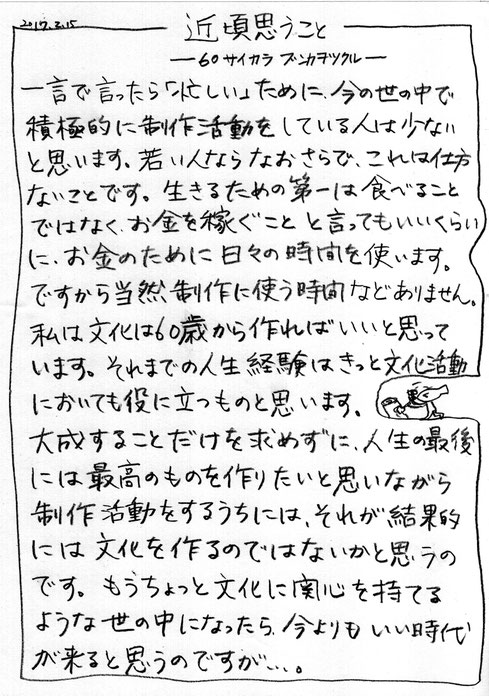 2017.2.15
近頃思うこと
―60サイカラ ブンカヲツクル―
一言で言ったら「忙しい」ために、今の世の中で
積極的に制作活動をしている人は少ない
と思います。若い人ならなおさらで、これは仕方
ないことです。生きるための第一は食べること
ではなく、お金を稼ぐこと と言ってもいいくらい
に、お金のために日々の時間を使います。
ですから当然、制作に使う時間などありません。
私は文化は60歳から作ればいいと思って
います。それまでの人生経験はきっと文化活動
においても役に立つものと思います。
大成することだけを求めずに、人生の最後
には最高のものを作りたいと思いながら
制作活動をするうちには、それが結果的
には文化を作るのではないかと思うの
です。もうちょっと文化に関心を持てる
ような世の中になったら、今よりもいい時代
が来ると思うのですが…。